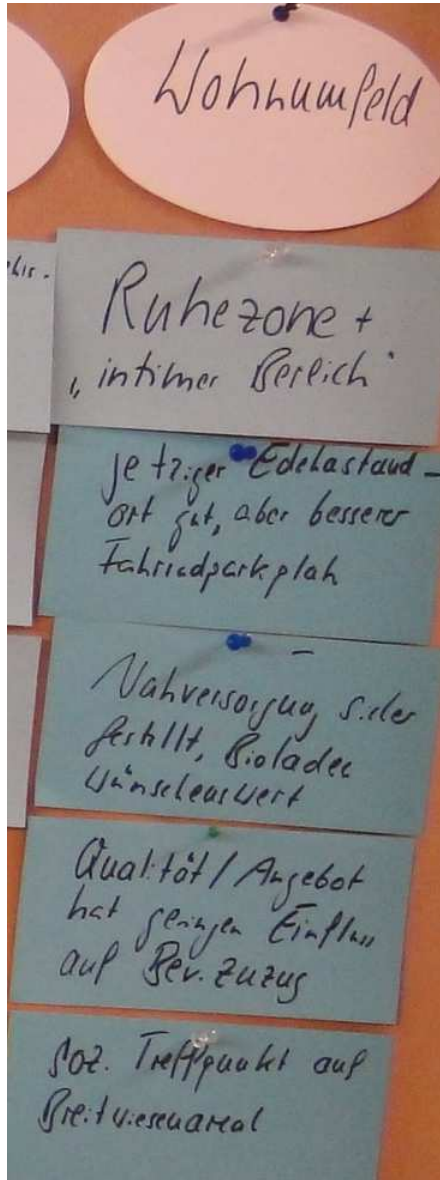 Wohnumfeld
Ruhezone +
„intimer Bereich"
jetziger Edekastand-
ort gut, aber besserer
Fahrradparkplatz
Nahversorgung sicher
gestellt, Bioladen
wünschenswert
Qualität/Angebot
hat geringen Einfluss
auf Bev. zuzug
Soz. Treffpunkt auf
Breitwiesenareal